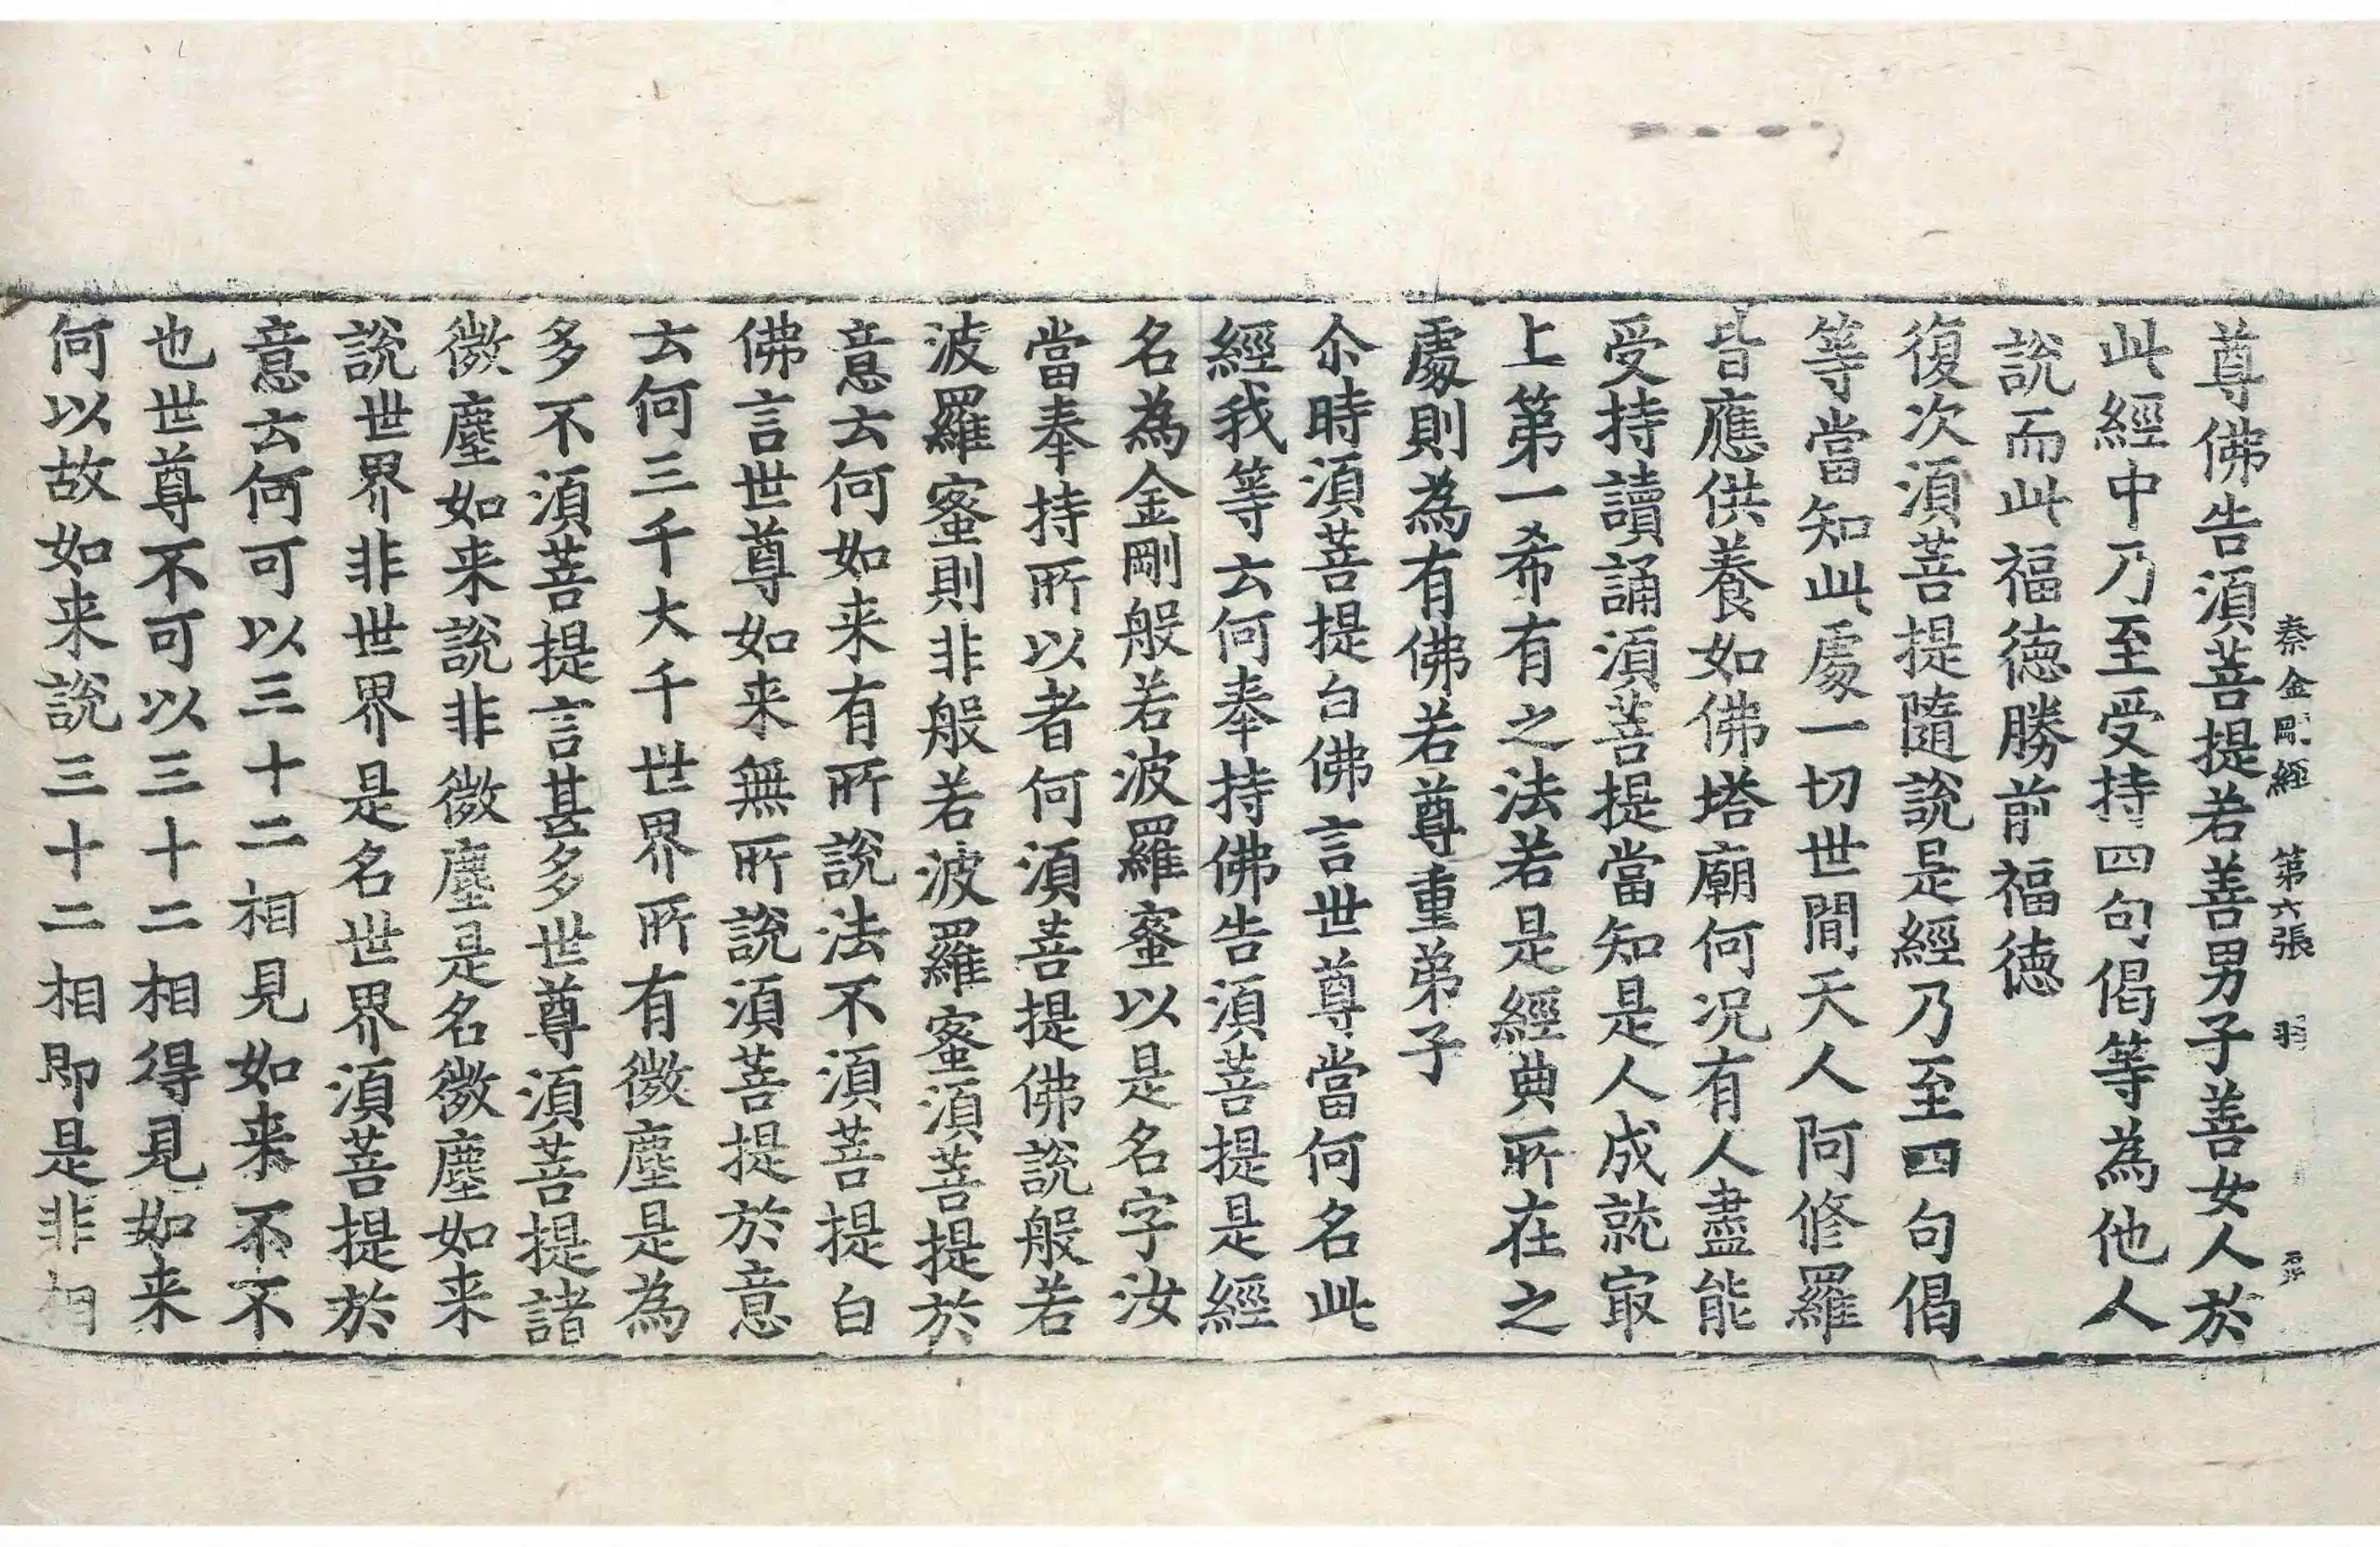 秦金剛經　第六張　羽
尊佛告須菩提若善男子善女人於
此經中乃至受持四句偈等為他人
說而此福德勝前福德
復次須菩提隨說是經乃至四句偈
等當知此處一切世間天人阿修羅
皆應供養如佛塔廟何況有人盡能
受持讀誦須菩提當知是人成就㝡
上第一希有之法若是經典所在之
處則為有佛若尊重弟子
尒時須菩提白佛言世尊當何名此
經我等云何奉持佛告須菩提是經
名為金剛般若波羅蜜以是名字汝
當奉持所以者何須菩提佛說般若
波羅蜜則非般若波羅蜜須菩提於
意云何如来有所說法不須菩提白
佛言世尊如来無所說須菩提於意
云何三千大千世界所有微塵是為
多不須菩提言甚多世尊須菩提諸
微塵如来說非微塵是名微塵如来
說世界非世界是名世界須菩提於
意云何可以三十二相見如来不不
也世尊不可以三十二相得見如来
何以故如来說三十二相即是非相